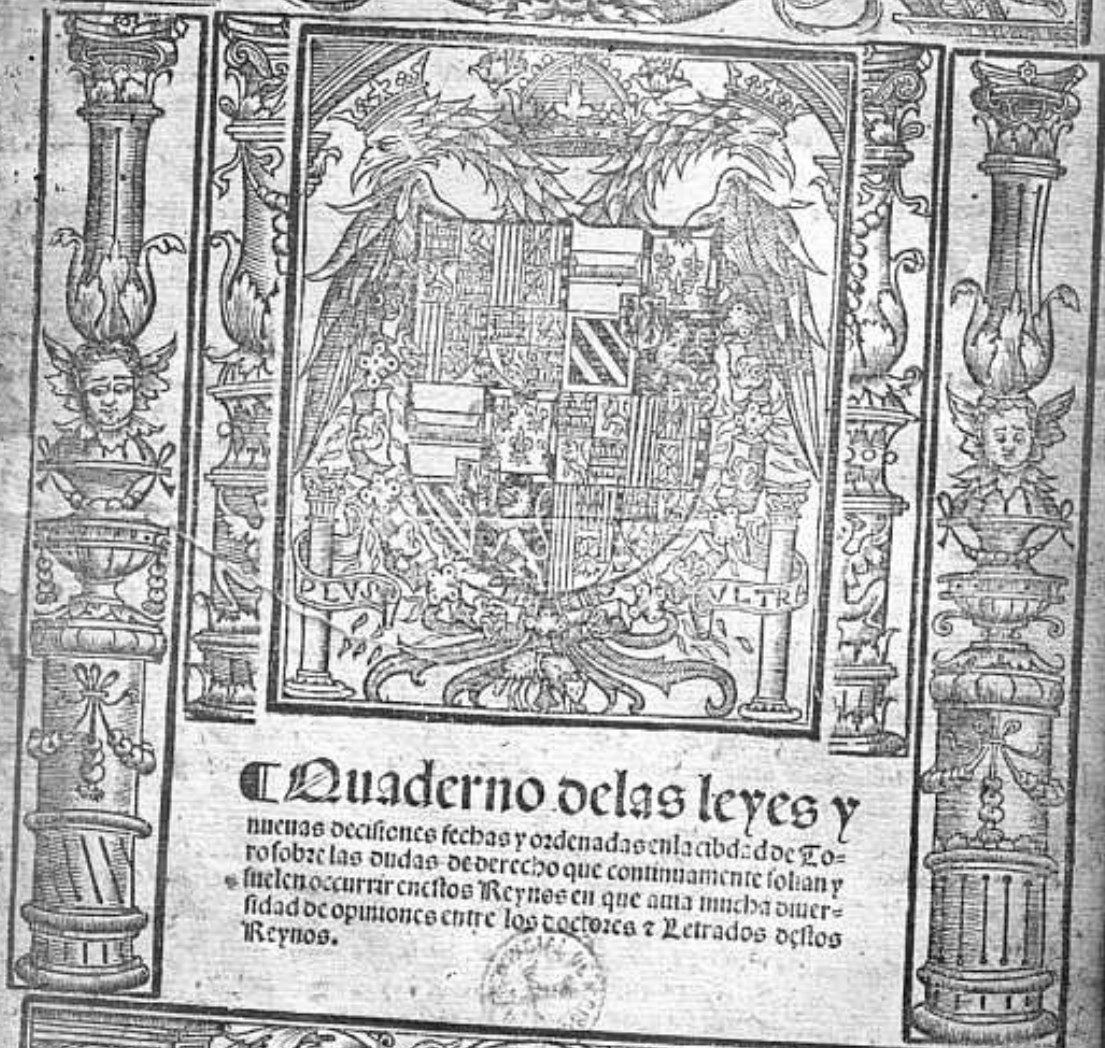 PLVS VLTR
¶ Quaderno delas leyes y
nueuas decisiones fechas y ordenadas enla cibdad de To=
ro sobre las dudas de derecho que continuamente solian y
suelen occurrir enestos Reynos en que auia mucha diuer=
sidad de opiniones entre los doctores ⁊ Letrados d̄stos
Reynos.